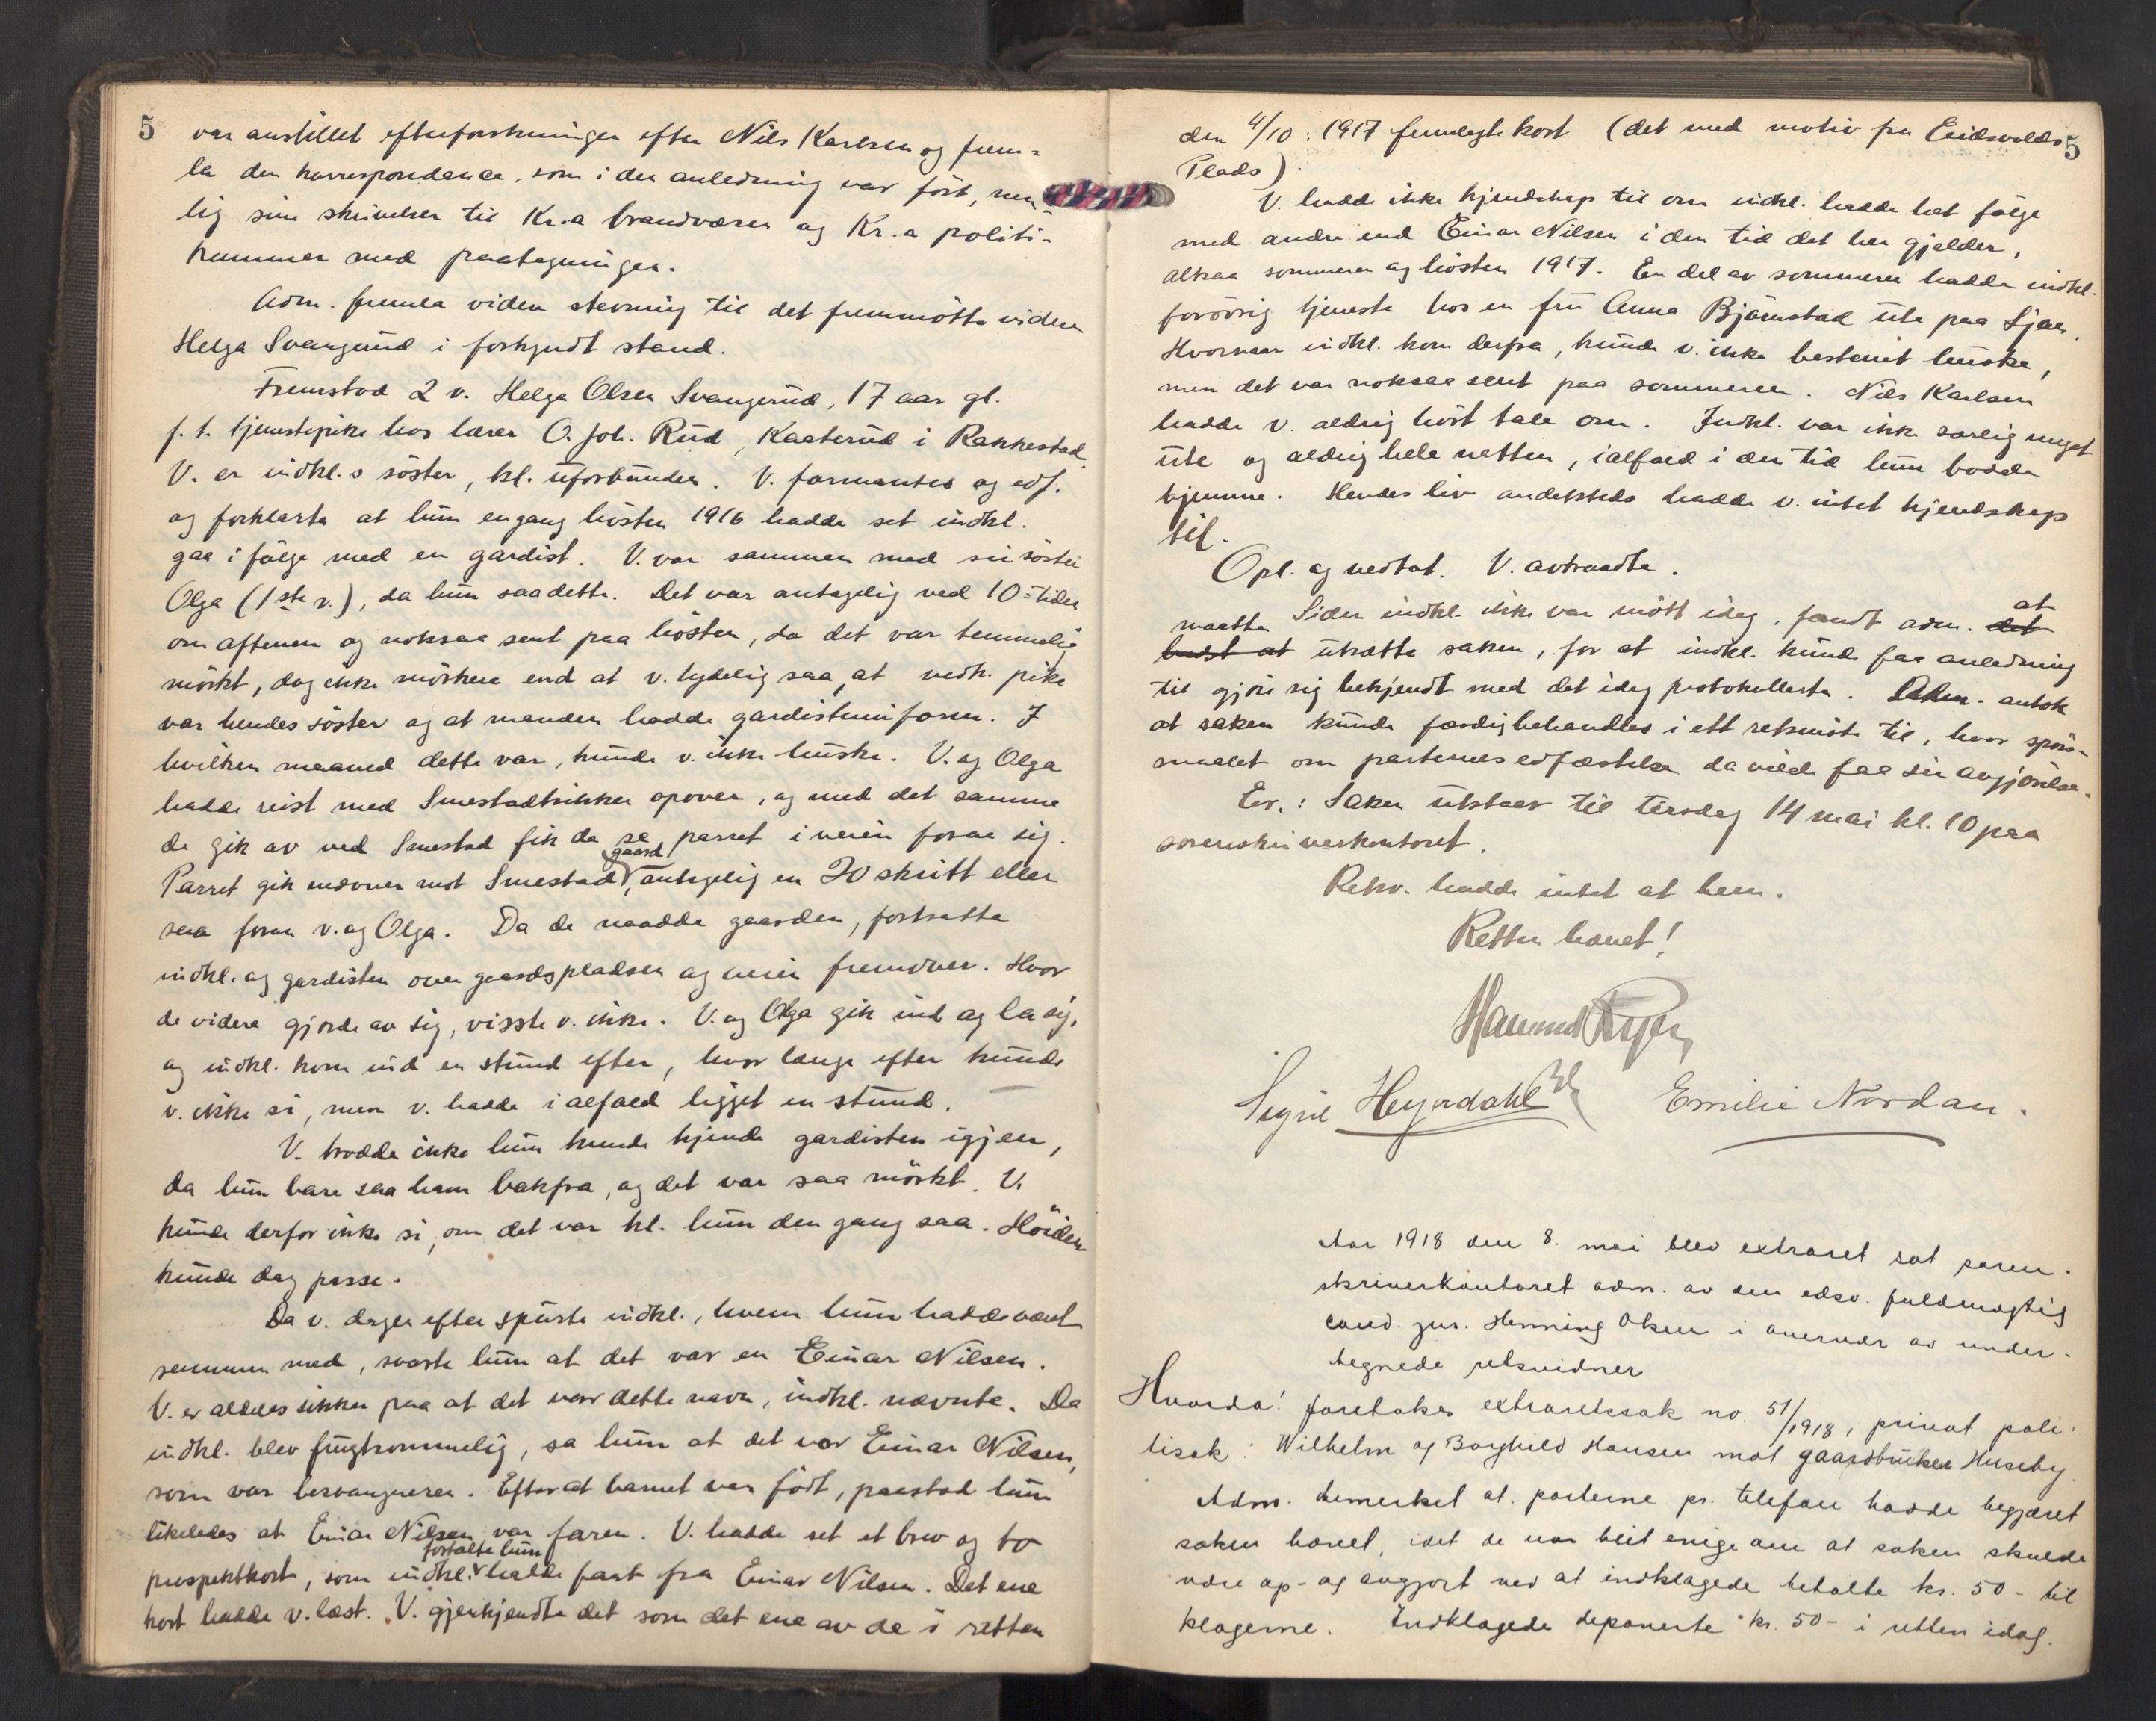 5
var anstillet efterforskninger efter Nils Karlsen og frem-
la den korrespondance, som i den anledning var ført, nem-
lig sine skrivelser til Kr.a brandvæsen og Kr.a politi-
kammer med paategninger.
Adm. fremla viden stevning til det fremmøtte vidne
Helga Svangerud i forkyndt stand.
Fremstod 2 v. Helga Olsen Svangerud, 17 aar gl.
f. t. tjenestepike hos lærer O. Joh. Rud, Kaaterud i Rakkestad.
V. er indkl.s søster, kl. uforbunden. V. formantes og edf.
og forklarte at hun engang høsten 1916 hadde set indkl.
gaa i følge med en gardist. V. var sammen med sin søster
Olga (1ste v.), da hun saa dette. Det var antagelig ved 10-tiden
om aftenen og noksaa sent paa høsten, da det var temmelig
mørkt, dog ikke mørkere end at v. tydelig saa, at vedk. pike
var hendes søster og at manden hadde gardistuniform. I
hvilken maaned dette var, kunde v. ikke huske. V. og Olga
hadde reist med Smestadtrikken opover, og med det samme
de gik av ved Smestad fik de se parret i veien foran sig.
Parret gik nedover mot Smestad gaard, antagelig en 20 skritt eller
saa foran v. og Olga. Da de naadde gaarden, fortsatte
indkl. og gardisten over gaardspladsen og veien fremover. Hvor
de videre gjorde av sig, visste v. ikke. V. og Olga gik ind og la sig,
og indkl. kom ind en stund efter, hvor længe efter kunde
v. ikke si, men v. hadde ialfald ligget en stund.
V. trodde ikke hun kunde kjende gardisten igjen,
da hun bare saa ham bakfra, og det var saa mørkt. V.
kunde derfor ikke si, om det var kl. hun den gang saa. Høiden
kunde dog passe.
Da v. dagen efter spurte indkl., hvem hun hadde været
sammen med, svarte hun at det var en Einar Nilsen.
V. er aldeles sikker paa at det var dette navn, indkl. nævnte. Da
indkl. blev frugtsommelig, sa hun at det var Einar Nilsen,
som var besvangreren. Efterat barnet var født, paastod hun
likeledes at Einar Nilsen var faren. V. hadde set et brev og to
prospektkort, som indkl. fortalte hun hadde faat fra Einar Nilsen. Det ene
kort hadde v. læst. V. gjenkjendte det som det ene av de i retten
5
den 4/10 : 1917 fremlagte kort (det med motiv fra Eidsvolds
Plads).
V. hadde ikke kjendskap til om indkl. hadde hat følge
med andre end Einar Nilsen i den tid det her gjelder,
altsaa sommeren og høsten 1917. En del av sommeren hadde indkl.
forøvrig tjeneste hos en fru Anna Bjørnstad ute paa Ljan.
Hvornaar indkl. kom derfra, kunde v. ikke bestemt huske,
men det var noksaa sent paa sommeren. Nils Karlsen
hadde v. aldrig hørt tale om. Indkl. var ikke særlig meget
ute og aldrig hele natten, ialfald i den tid hun bodde
hjemme. Hendes liv andetsteds hadde v. intet kjendskap
til.
Opl. og vedtat. V. avtraadte.
Siden indkl. ikke var møtt idag, fandt adm. det at
maatte bedst at utsætte saken, for at indkl. kunde faa anledning
til gjøre sig bekjendt med det idag protokollerte. Adm. antok
at saken kunde færdigbehandles i ett retsmøte til, hvor spørs-
maalet om parternes edfæstelse da vilde faa sin avgjørelse.
Er.: Saken utstaar til tirsdag 14 mai kl. 10 paa
sorenskriverkontoret.
Rekv. hadde intet at bem.
Retten hævet!
Sigrid Heyerdahl Emilie Nordan.
Aar 1918 den 8. mai blev extraret sat soren-
skriverkontoret adm. av den edsv. fuldmægtig
cand. jur. Henning Oken i overvær av under-
tegnede retsvidner
Hvorda! foretokes extraretssak no. 51/1918, privat poli-
tisak: Wilhelm og Borghild Hansen mot gaardbruker Huseby.
Adm. bemerket at parterne pr. telefon hadde begjæret
saken hævet, idet de var blit enige om at saken skulde
være op- og avgjort ved at indklagede betalte kr. 50- til
klagerne. Indklagede deponerte kr. 50- i retten idag.